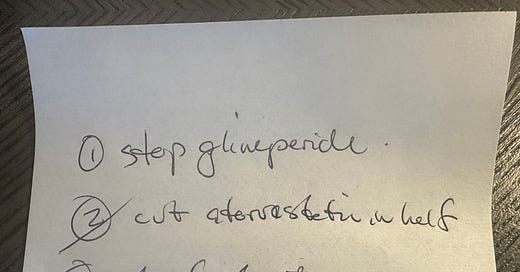 ① stop glimeperide.
② cut atorvastatin in half